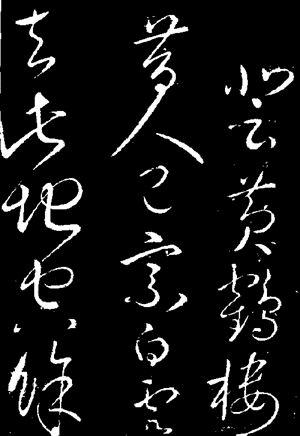 云黄鶴樓
昔人已乘白雲
去此地空餘